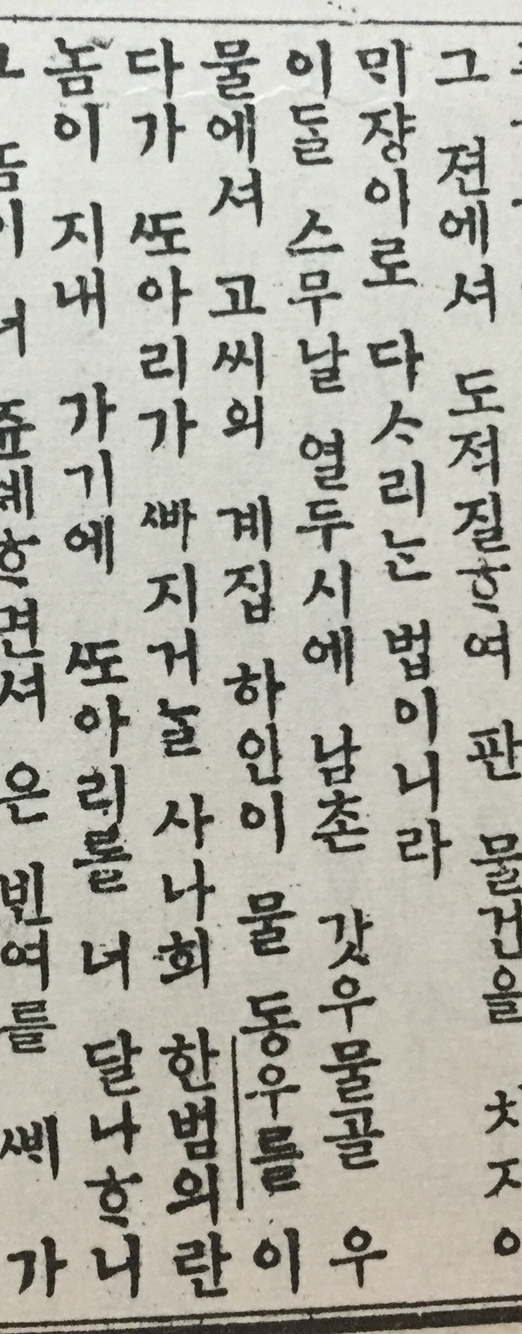 그 젼에셔 도적질ᄒᆞ여 판 물건을
ᄆᆡ쟝이로 다ᄉᆞ리ᄂᆞᆫ 법이니라
이ᄃᆞᆯ 스무날 열두시에 남촌 갓우물골 우
물에셔 고씨의 계집 하인이 물 동우를 이
다가 ᄯᅩ아리가 ᄲᅡ지거ᄂᆞᆯ 사나희 한범의란
놈이 지내 가기에 ᄯᅩ아리를 너 달나ᄒᆞ니
면셔 은 빈여를 가